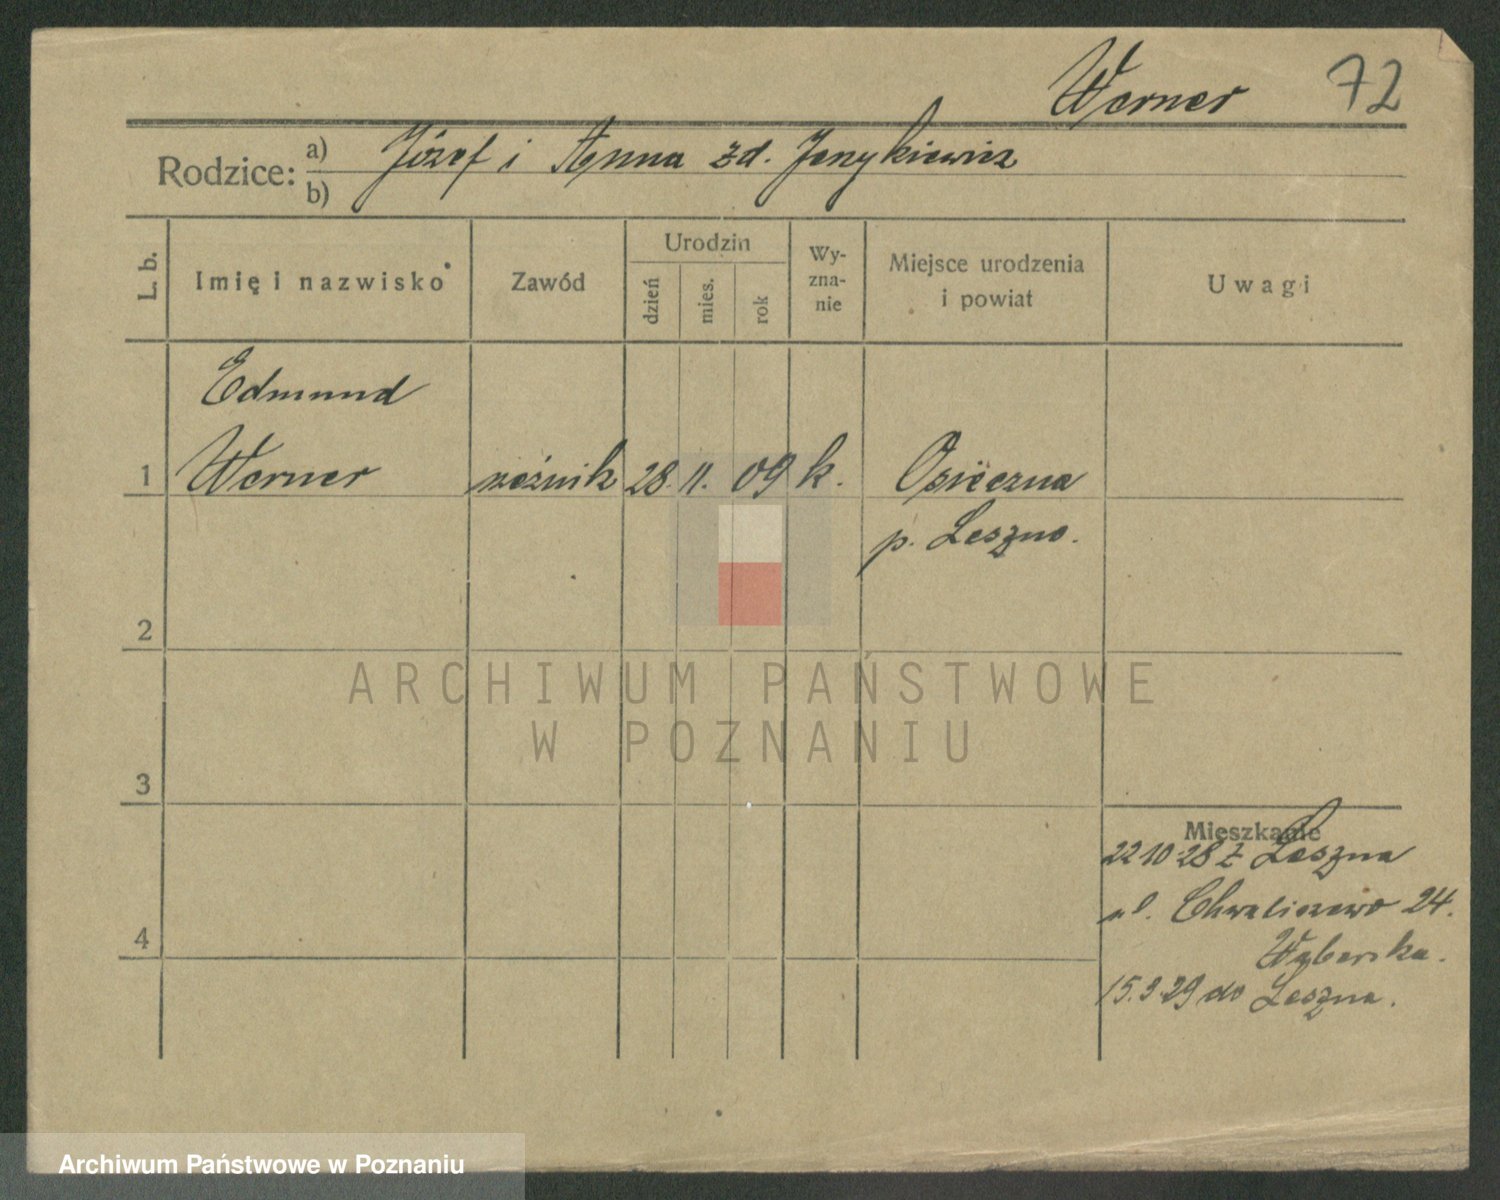 Werner 72
Rodzice: a) Józef i Anna zd. Jenykiewicz
b)
L. b. Imię i nazwisko Zawód Urodzin dzień mies. rok Wy-zna-nie Miejsce urodzenia i powiat Uwagi
Edmund
1 Werner rzeźnik 28. 11. 09 k. Osieczna
p. Leszno.
2
ARCHIWUM PAŃSTWOWE
W POZNANIU
3
Mieszkanie
22 10 28 z Leszna
4 ul. Chwaliszewo 24.
15.3.29 do Leszna.
Archiwum Państwowe w Poznaniu